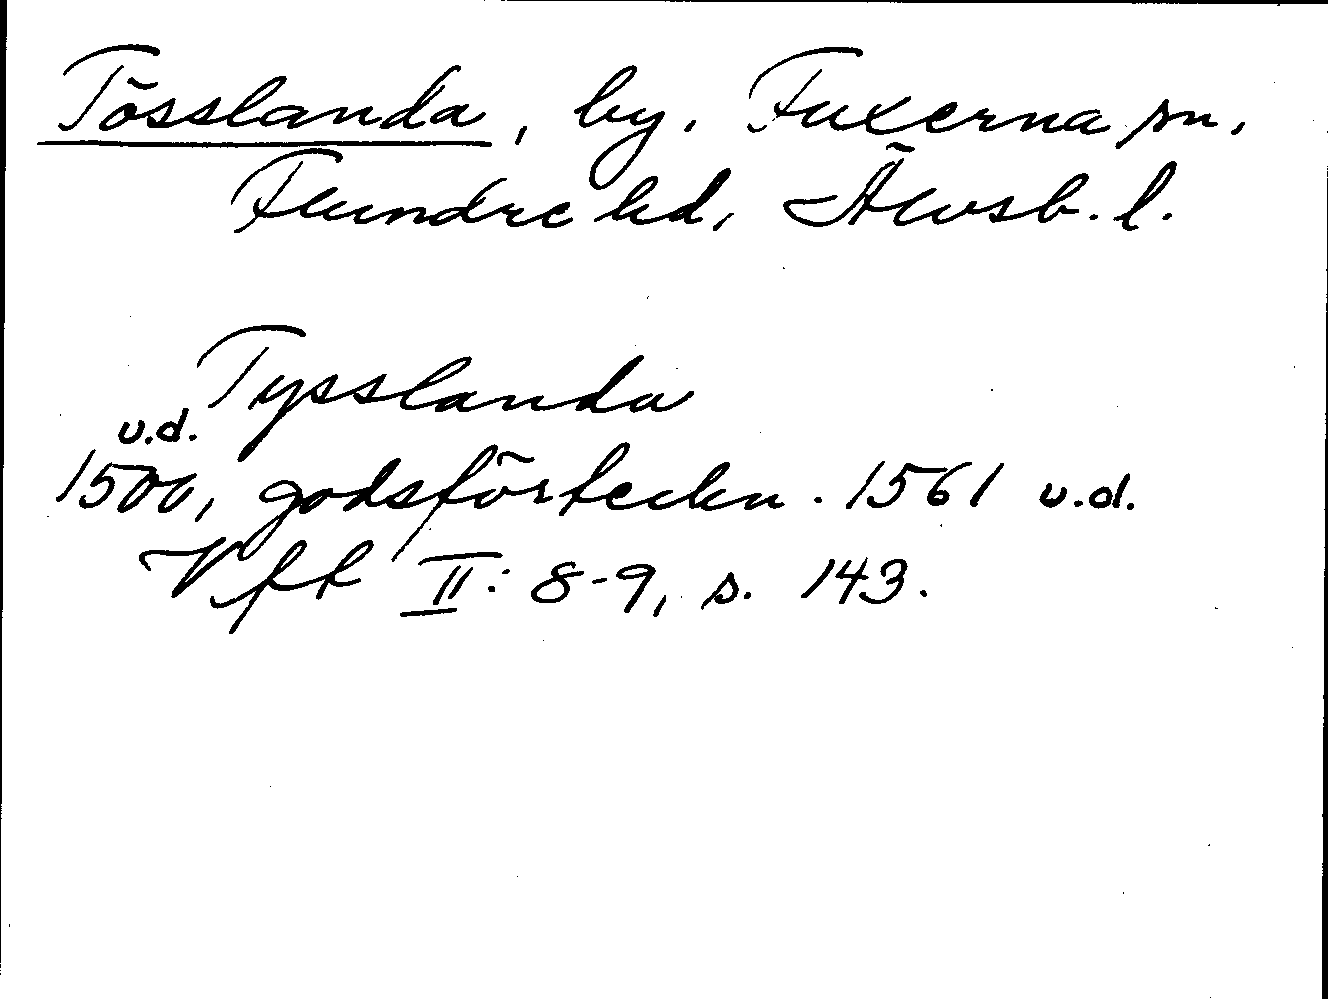 Tösslanda, by. Fuxerna sn,
Flundre hd, Älvsb. l.
Tysslanda
u.d.
1500, godsförteckn. 1561 u.d.
Vff II: 8-9, s. 143.